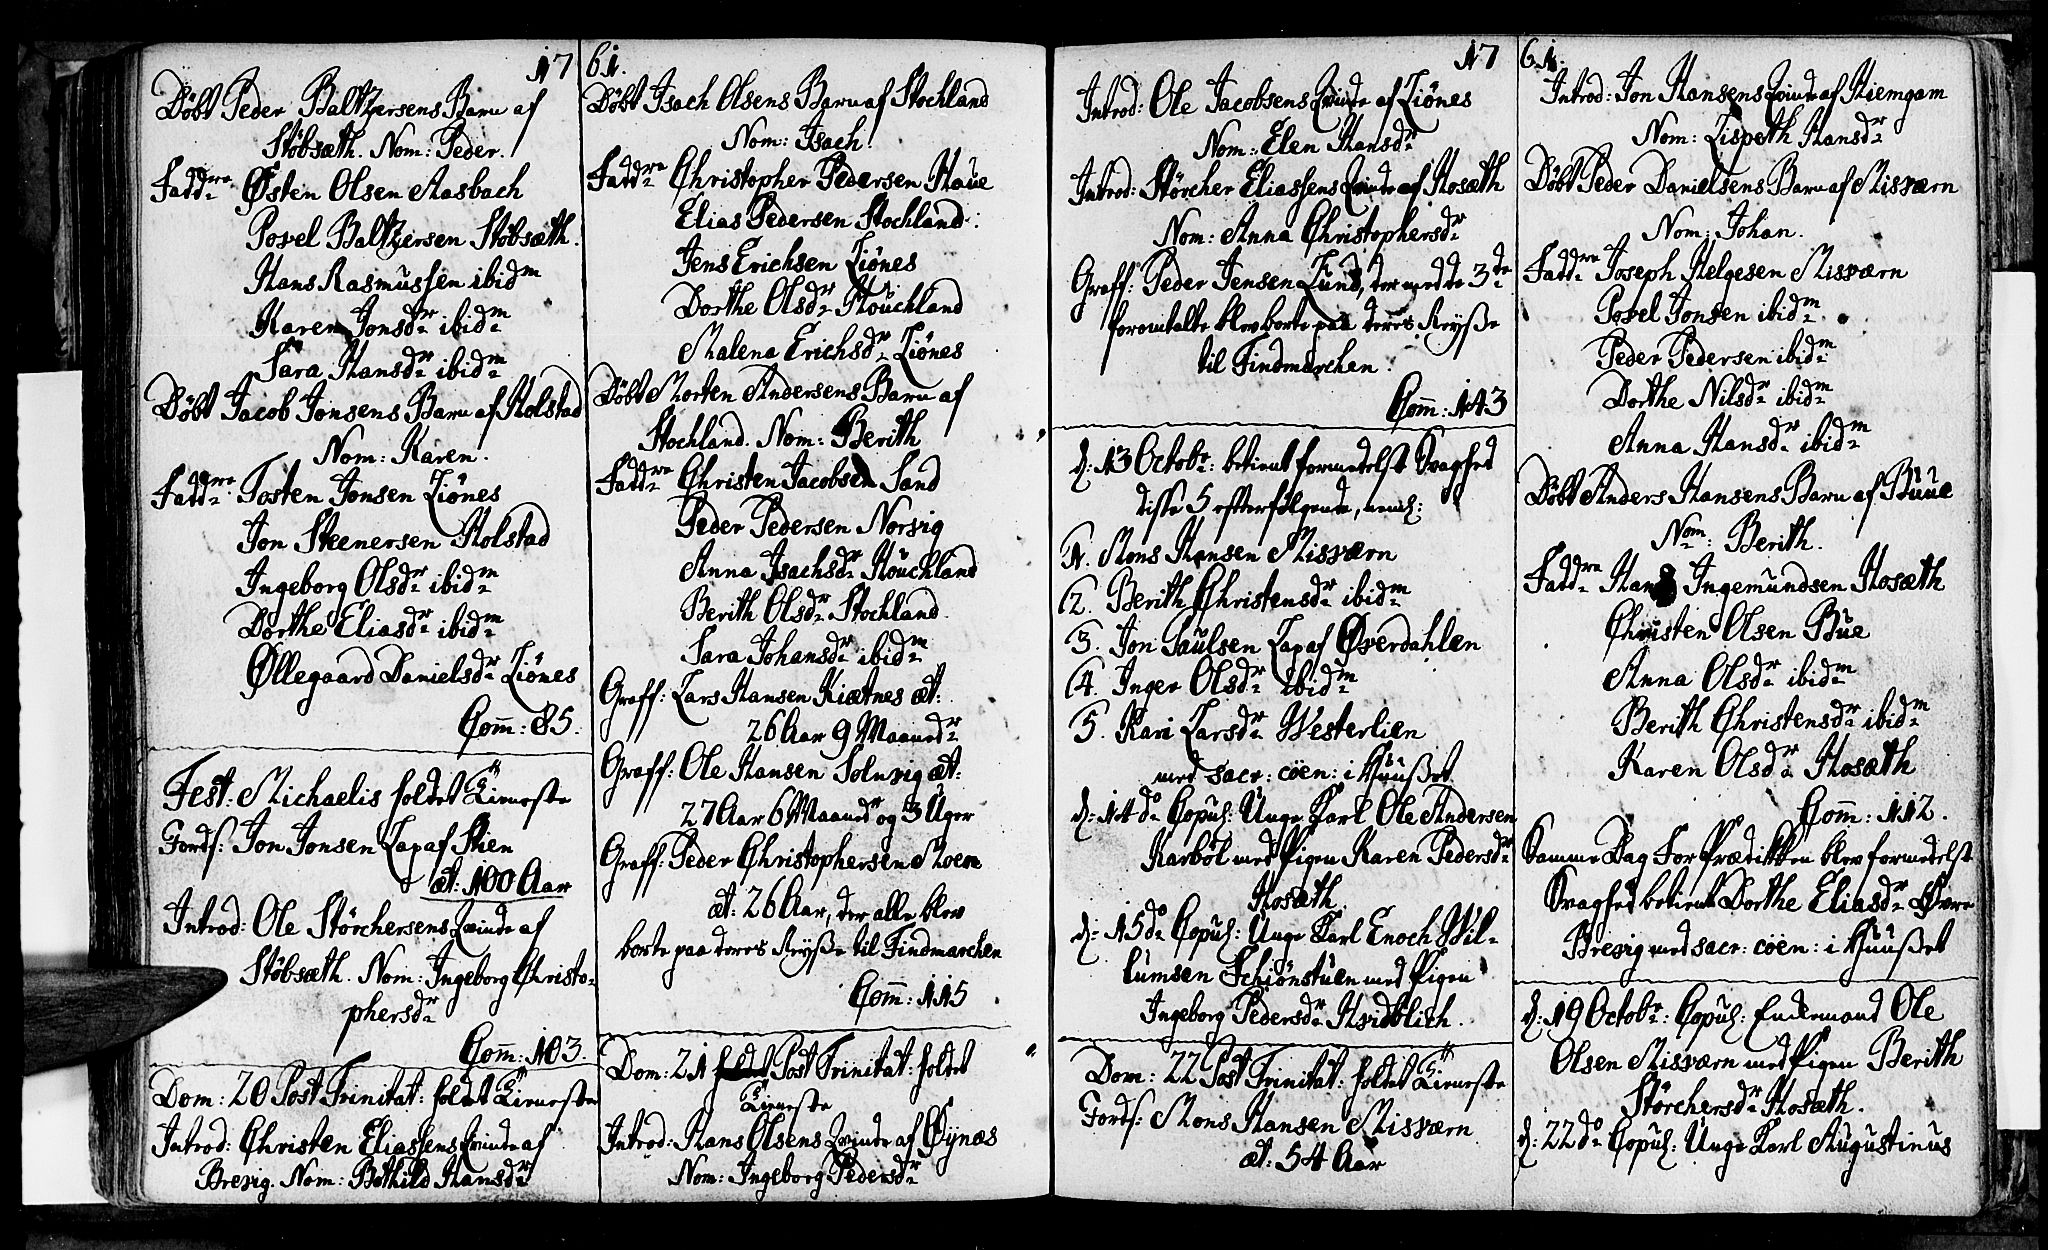 1761.
Döbt Peder Baltzersens Barn af
Stöbsæth. Nom: Peder.
Faddre Østen Olsen Aasbach
Povel Baltzersen Stöbsæth.
Hans Rasmussen ibidm
Karen Jonsdr ibidm
Sara Hansdr ibidm
Döbt Jacob Jonsens Barn af Holstad
Nom: Karen.
Faddre Tosten Jonsen Liönes
Jon Steenersen Holstad
Ingeborg Olsdr ibidm
Dorthe Eliasdr ibidm
Øllegaard Danielsdr Liönes
Com̄: 85.
Fest: Michaelis holdet Tieneste
Jordf: Jon Jonsen Lap af Skien
æt: 100 Aar
Introd: Ole Störchersens Qvinde af
Stöbsæth. Nom: Ingeborg Christo-
phersdr
Com̄: 103.
Dom: 20 Post Trinitat: holdt Tieneste
Introd: Christen Eliassens Qvinde af
Brevig. Nom: Bothild Hansdr
Döbt Isach Olsens Barn af Stochland
Nom: Isach.
Faddre Christopher Pedersen Haue
Elias Pedersen Stochland.
Jens Erichsen Liönes
Dorthe Olsdr Houchland
Malena Erichsdr Liönes
Döbt Morten Andersens Barn af
Stochland. Nom: Berith
Faddre Christen Jacobsen Sand
Peder Pedersen Norvig
Anna Isachsdr Houchland
Berith Olsdr Stochland.
Sara Johansdr ibidm
Graff: Lars Hansen Kiætnes æt:
26 Aar 9 Maanedr
Graff: Ole Hansen Solnvig æt:
27 Aar 6 Maanedr og 3 Uger
Graff: Peder Christophersen Moen
æt: 26 Aar, der alle blev
borte paa deres Reyse til Findmarchen
Com̄: 115
Dom: 21 Post Trinitat: holdet
Tieneste
Introd: Hans Olsens Qvinde af Øynæs
Nom: Ingeborg Pedersdr
1761.
Introd: Ole Jacobsens Qvinde af Liönes
Nom: Elen Hansdr
Introd: Störcher Eliassens Qvinde af Hosæth
Nom: Anna Christophersdr
Graff: Peder Jensen Lund, der med de 3de
foromtalte blev borte paa deres Reyße
til Findmarchen.
Com̄: 143
d: 13 Octobr: betient formedelst Svaghed
disse 5 efterfølgende, neml:
1. Mons Hansen Misværn
2. Berith Christensdr ibidm
3. Jon Paulsen Lap af Øverdahlen
4. Inger Olsdr ibidm
5. Kari Larsdr Westerlien
med sacr: cöen: i Huußet
d: 14do Copul: Unge Karl Ole Andersen
Karböl med Pigen Karen Pedersdr
Hosæth.
d: 15do Copul: Unge Karl Enoch Wil-
lumsen Schiönstuen med Pigen
Ingeborg Pedersdr Hvidblich.
Dom: 22 Post Trinitat: holdet Tieneste
Jordf: Mons Hansen Misværn
æt: 54 Aar
Introd: Jon Hansens Qvinde af Hiemgam
Nom: Lispeth Hansdr
Döbt Peder Danielsens Barn af Misværn
Nom: Johan.
Faddre Joseph Helgesen Misværn
Povel Jonsen ibidm
Peder Pedersen ibidm
Dorthe Nilsdr ibidm
Anna Hansdr ibidm
Döbt Anders Hansens Barn af Buue
Nom: Berith.
Faddre Hans Ingemundsen Hosæth
Christen Olsen Bue
Anna Olsdr ibidm
Berith Christensdr ibidm
Karen Olsdr Hosæth
Com̄: 112.
Samme Dag For Prædikken blev formedelst
Svaghed betient Dorthe Eliasdr Øvre
Brevig med sacr: cöen: i Huußet
d: 19 Octobr: Copul: Enckemand Ole
Olsen Misværn med Pigen Berith
Störchersdr Hosæth.
d: 22do Copul: Unge Karl Augustinus